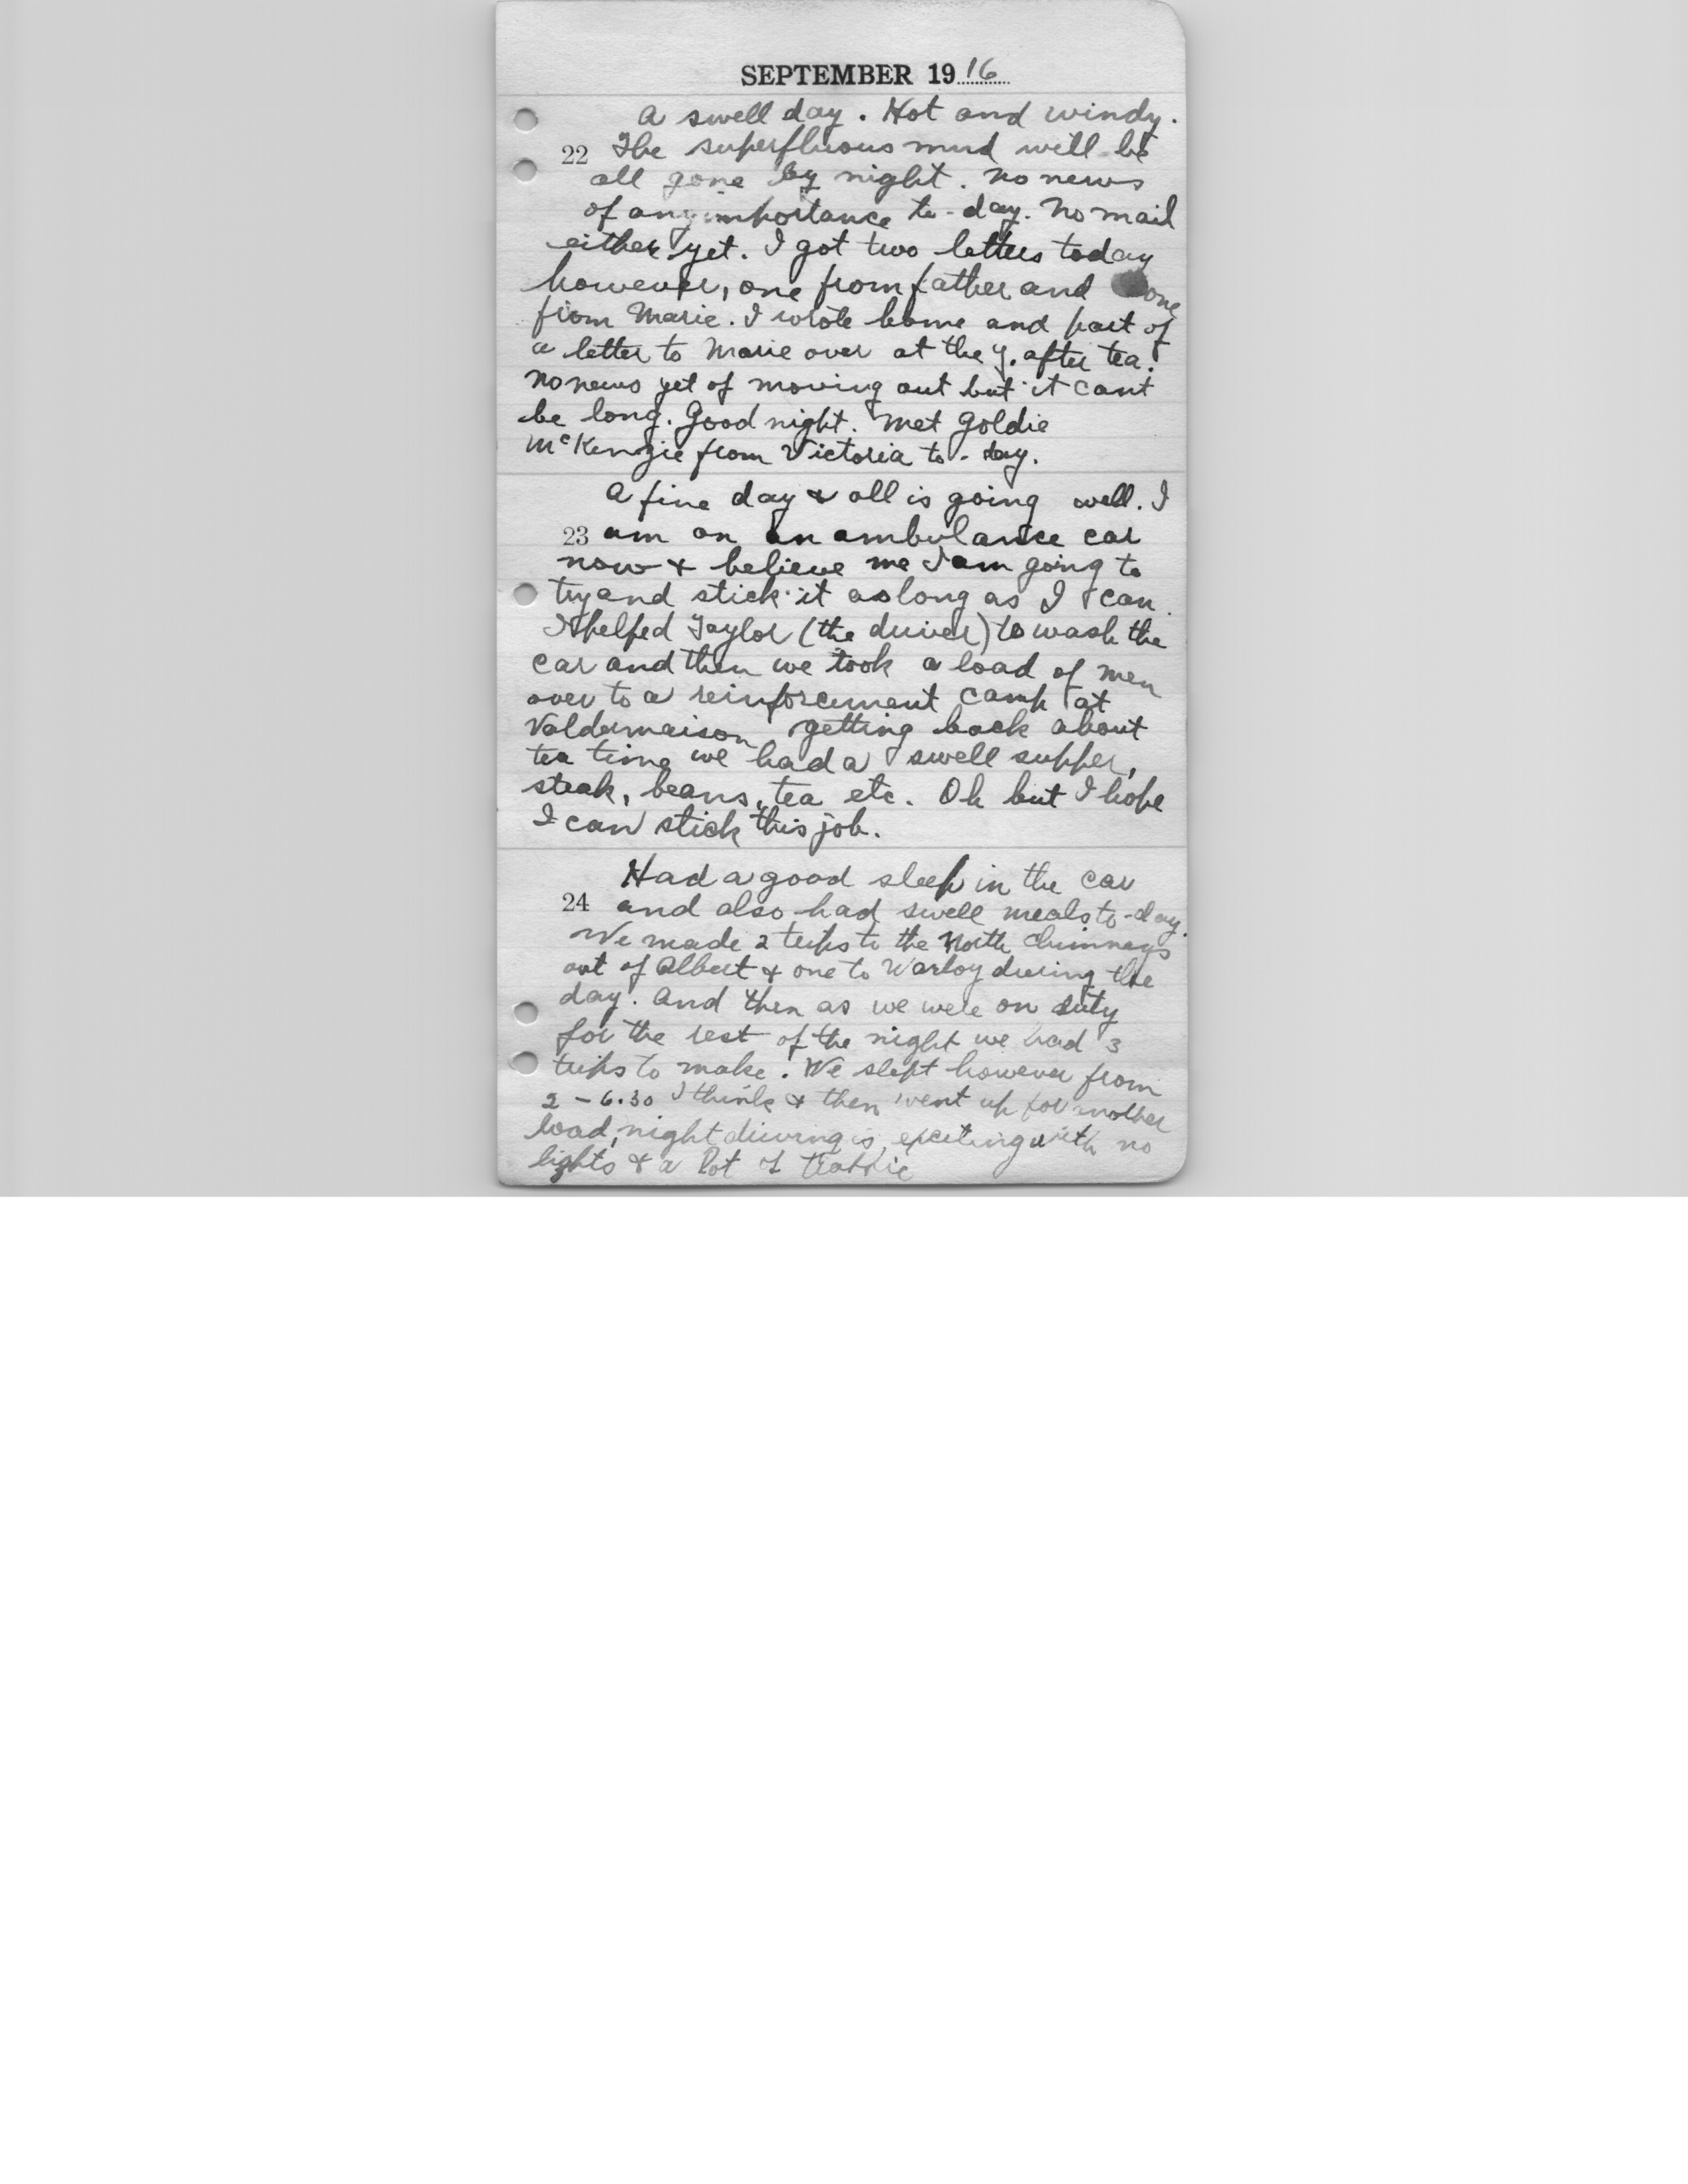 SEPTEMBER 1916
A swell day. Hot and windy.
22 The superfluous mud will be
all gone by night. No news
of any importance to-day. No mail
either yet. I got two letters today
however, one from father and one
from Marie. I wrote home and part of
a letter to Marie over at the Y. after tea.
No news yet of moving out but it cant
be long. Good night. Met Goldie
McKenzie from Victoria to-day.
A fine day & all is going well. I
23 am on an ambulance car
now & believe me I am going to
try and stick it as long as I can.
I helped Taylor (the driver) to wash the
car and then we took a load of men
over to a reinforcement camp at
Valdemaison getting back about
tea time we had a swell supper,
steak, beans, tea etc. Oh but I hope
I can stick this job.
Had a good sleep in the car
24 and also had swell meals to-day.
We made 2 trips to the North Chimneys
out of Albert & one to Warloy during the
day. And then as we were on duty
for the rest of the night we had 3
trips to make. We slept however from
2 - 6.30 I think & then went up for another
load, night driving is exciting with no
lights & a lot of traffic